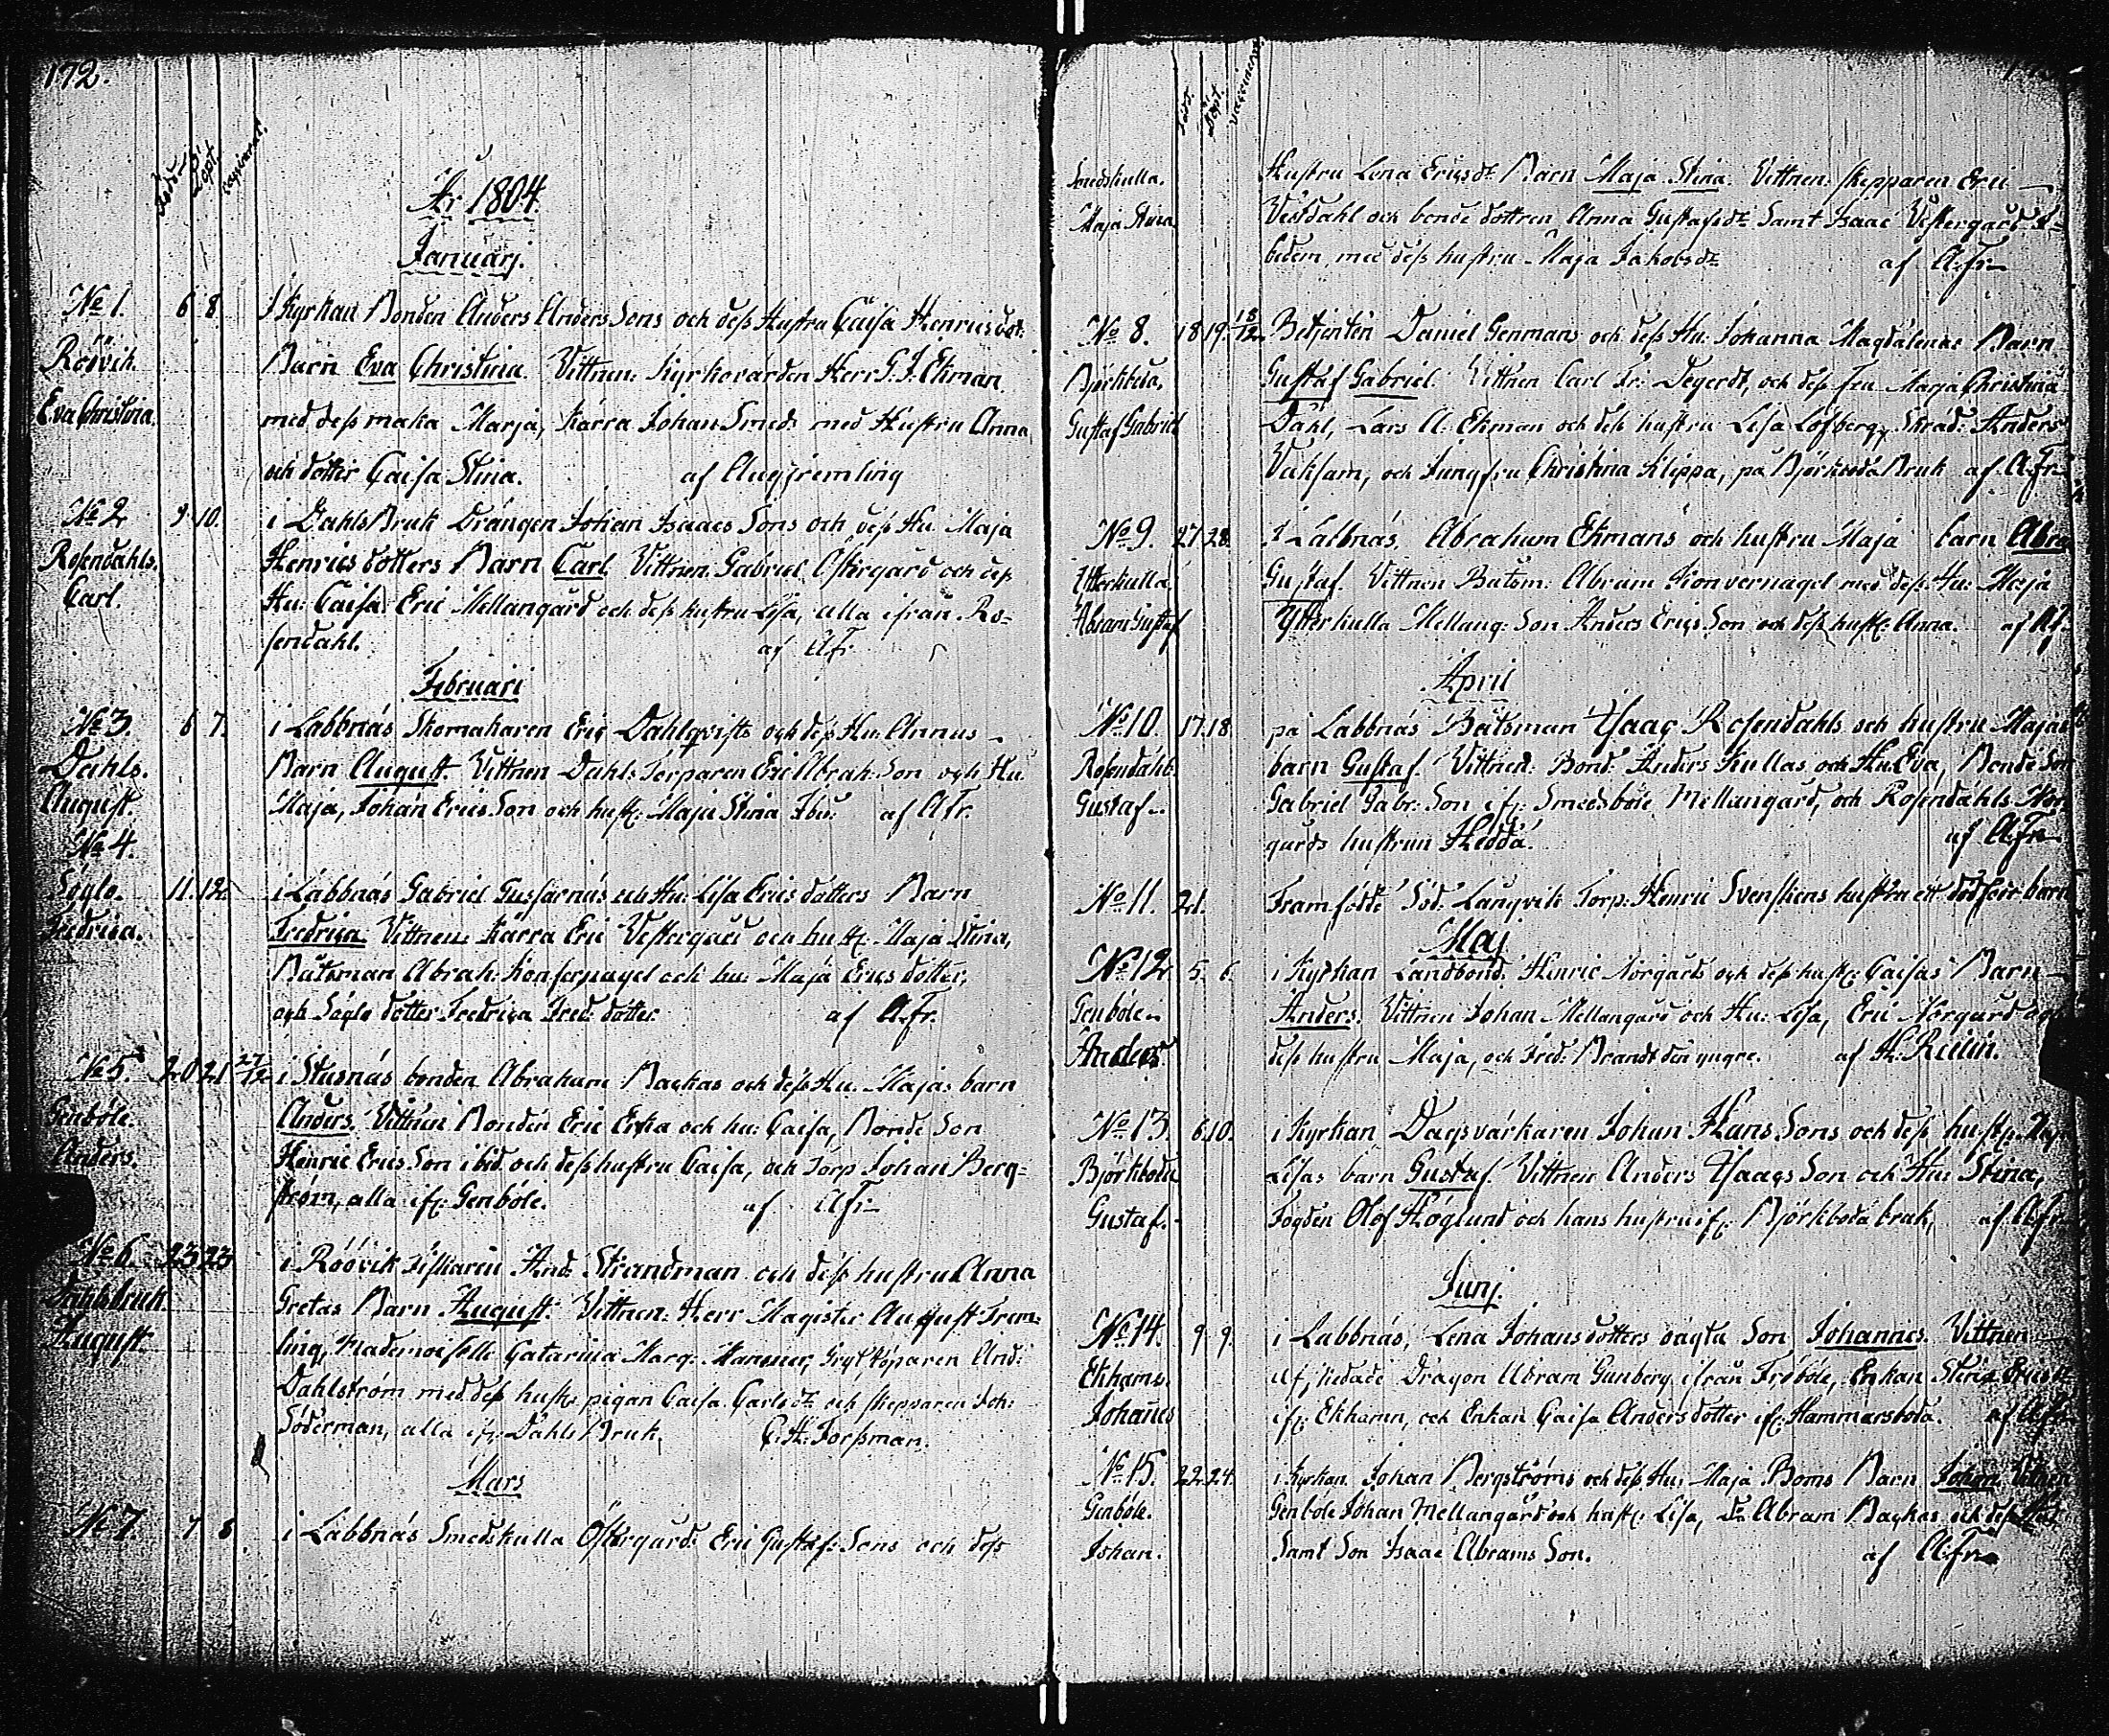 172.
Född
Döpt
vaccinerad.
År 1804.
Januarj.
No 1. 6. 8. I Kyrkan Bonden Anders Anders Sons och dess Hustru Caisa Henricsdot:
Röövik. Barn Eva Christina. Vittnen: Kyrkovärden Herr G. J. Ekman
Eva Christina. med dess maka Marja, Kärra Johan Smeds med Hustru Anna
och dotter Caisa Stina. af Aug Fremling
No 2 9. 10. i Dahls Bruk Drängen Johan Isaacs Sons och dess Hu. Maja
Rosendahls. Henrics dotters Barn Carl. Vittnen. Gabriel Östergård och dess
Carl. Hu: Caisa. Eric Mellangård och dess hustru Lisa, alla ifrån Ro=
sendahl. af AFr.
Februari
No 3. 6 7. i Labbnäs Skomakaren Eric Dahlqvists och dess Hu. Annas
Dahls. Barn August. Vittnen Dahls Torparen Eric Abrah: Son och Hu.
August. Maja, Johan Erics Son och hust: Maja Stina Ibid. af AFr.
No 4.
Söglö. 11. 12. i Labbnäs Gabriel och Hu: Lisa Erics dotters Barn
Fredrica. Fredrica. Vittnen Kärra Eric Vestergård och hust: Maja Stina,
Båtsman Abrah: och hu: Maja Erics dotter,
och Söglö dotter Fredrica Fred: dotter. af A.Fr.
No 5. 20 21 27/12 i Stusnäs bonden Abraham Backas och dess Hu. Majas barn
Genböle. Anders. Vittnen Bonden Eric Erka och hu: Caisa, Bonde Son
Anders. Henric Erics Son ibid. och dess hustru Caisa, och Torp Johan Berg=
ström, alla ifr: Genböle. af AFr
No 6. 23 23 i Röövik Fiskaren And: Strandman och dess hustru Anna
Dahlsbruk. Gretas Barn August. Vittnen: Herr Magister August Frem=
August. ling, Mademoiselle Catarina Marg: And:
Dahlström med dess hustr. pigan Caisa Carlsdr. och skepparen Joh:
Söderman, alla ifr: Dahls Bruk. C. H. Forssman.
Mars
No 7 7 8. i Labbnäs Smedskulla Östergårds Eric Gustaf: Sons och dess
Född.
Döpt.
vaccinerad
Smedskulla. Hustru Lena Ericsdr. Barn Maja Stina. Vittnen: skepparen Eric
Maja Stina Vestdahl och bonde dottren Anna Gustafsdr. Samt Isaac Vestergård I=
bidem, med dess hustru Maja Jakobsdr. af A.Fr
No 8. 18 19. 18/12 Betjenten Daniel Genmans och dess Hu: Johanna Magdalenas Barn
Björkboda. Gustaf Gabriel. Vittnen Carl Fr: Degerdt, och dess Fru Marja Christina
Gustaf Gabriel Dahl, Lars A. Ekman och dess hustru Lisa Löfberg, Skräd: Anders
Vaksam, och Jungfru Christina Klippa, på Björkboda Bruk af A.Fr
No 9. 27 28. i Labbnäs. Abraham Ekmans och hustru Maja barn Abra
Ytterkulla Gustaf. Vittnen Båtsm: Abram med dess Hu: Maja
Abram Gustaf Ytterkulla Mellang: Son Anders Erics Son och dess hust: Anna. af Af.
April
No 10. 17. 18. på Labbnäs Båtsman Isaac Rosendahls och hustru Majas
Rosendahls. barn Gustaf. Vittnen: Bond: Anders Kullas och Hu. Eva, Bonde Son
Gustaf. Gabriel Gabr: Son ifr: Smedsböle Mellangård, och Rosendahls Nor
gårds hustrun Hedda. af A.Fr
No 11. 21. Framfödde Söd: Långvik Torp: Henric Svenskens hustru ett dödfödt barn
Maj
No 12. 5. 6. i Kyrkan Landbond: Henric Norgårds och dess hust: Caisas Barn
Genböle. Anders. Vittnen Johan Mellangård och Hu: Lisa, Eric Norgård och
Anders. dess hustru Maja, och Fred: Brandt den yngre. af H. Relin.
No 13. 6. 10. i Kyrkan Dagsvärkaren Johan Hans Sons och dess hustr.
Björkboda Lisas barn Gustaf. Vittnen Anders Isaacs Son och Hu: Stina,
Gustaf. Fogden Olof Höglund och hans hustru ifr: Björkboda bruk, af A.Fr
Junj.
No 14. 9. 9. i Labbnäs, Lena Johansdotters oägta Son Johannes. Vittnen
Ekhamn. afskedade Dragon Abram Gunberg ifrån Fröböle, Enkan Stina Ericsdr
Johanes ifr: Ekhamn, och Enkan Caisa Andersdotter ifr: Hammarsboda. af A.Fr
No 15. 22. 24. i Kyrkan. Johan Bergströms och dess Hu: Maja Boms Barn Johan. Vittnen
Genböle. Genböle Johan Mellangård och hust: Lisa, Do Abram Backas och dess Hu:
Johan. Samt Son Isaac Abrams Son. af A.Fr